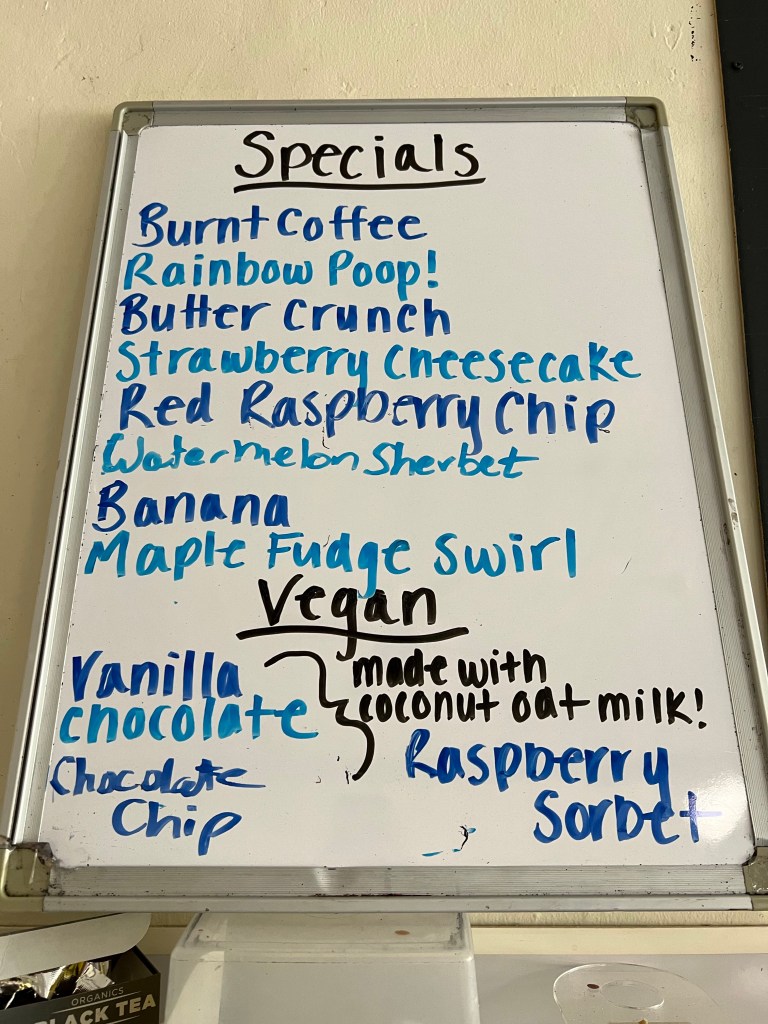 Specials
Burnt Coffee
Rainbow Poop!
Butter Crunch
Strawberry Cheesecake
Red Raspberry Chip
Watermelon Sherbet
Banana
Maple Fudge Swirl
Vegan
Vanilla
chocolate
Chocolate
Chip
made with
coconut oat milk!
Raspberry
Sorbet
ORGANICS
BLACK TEA